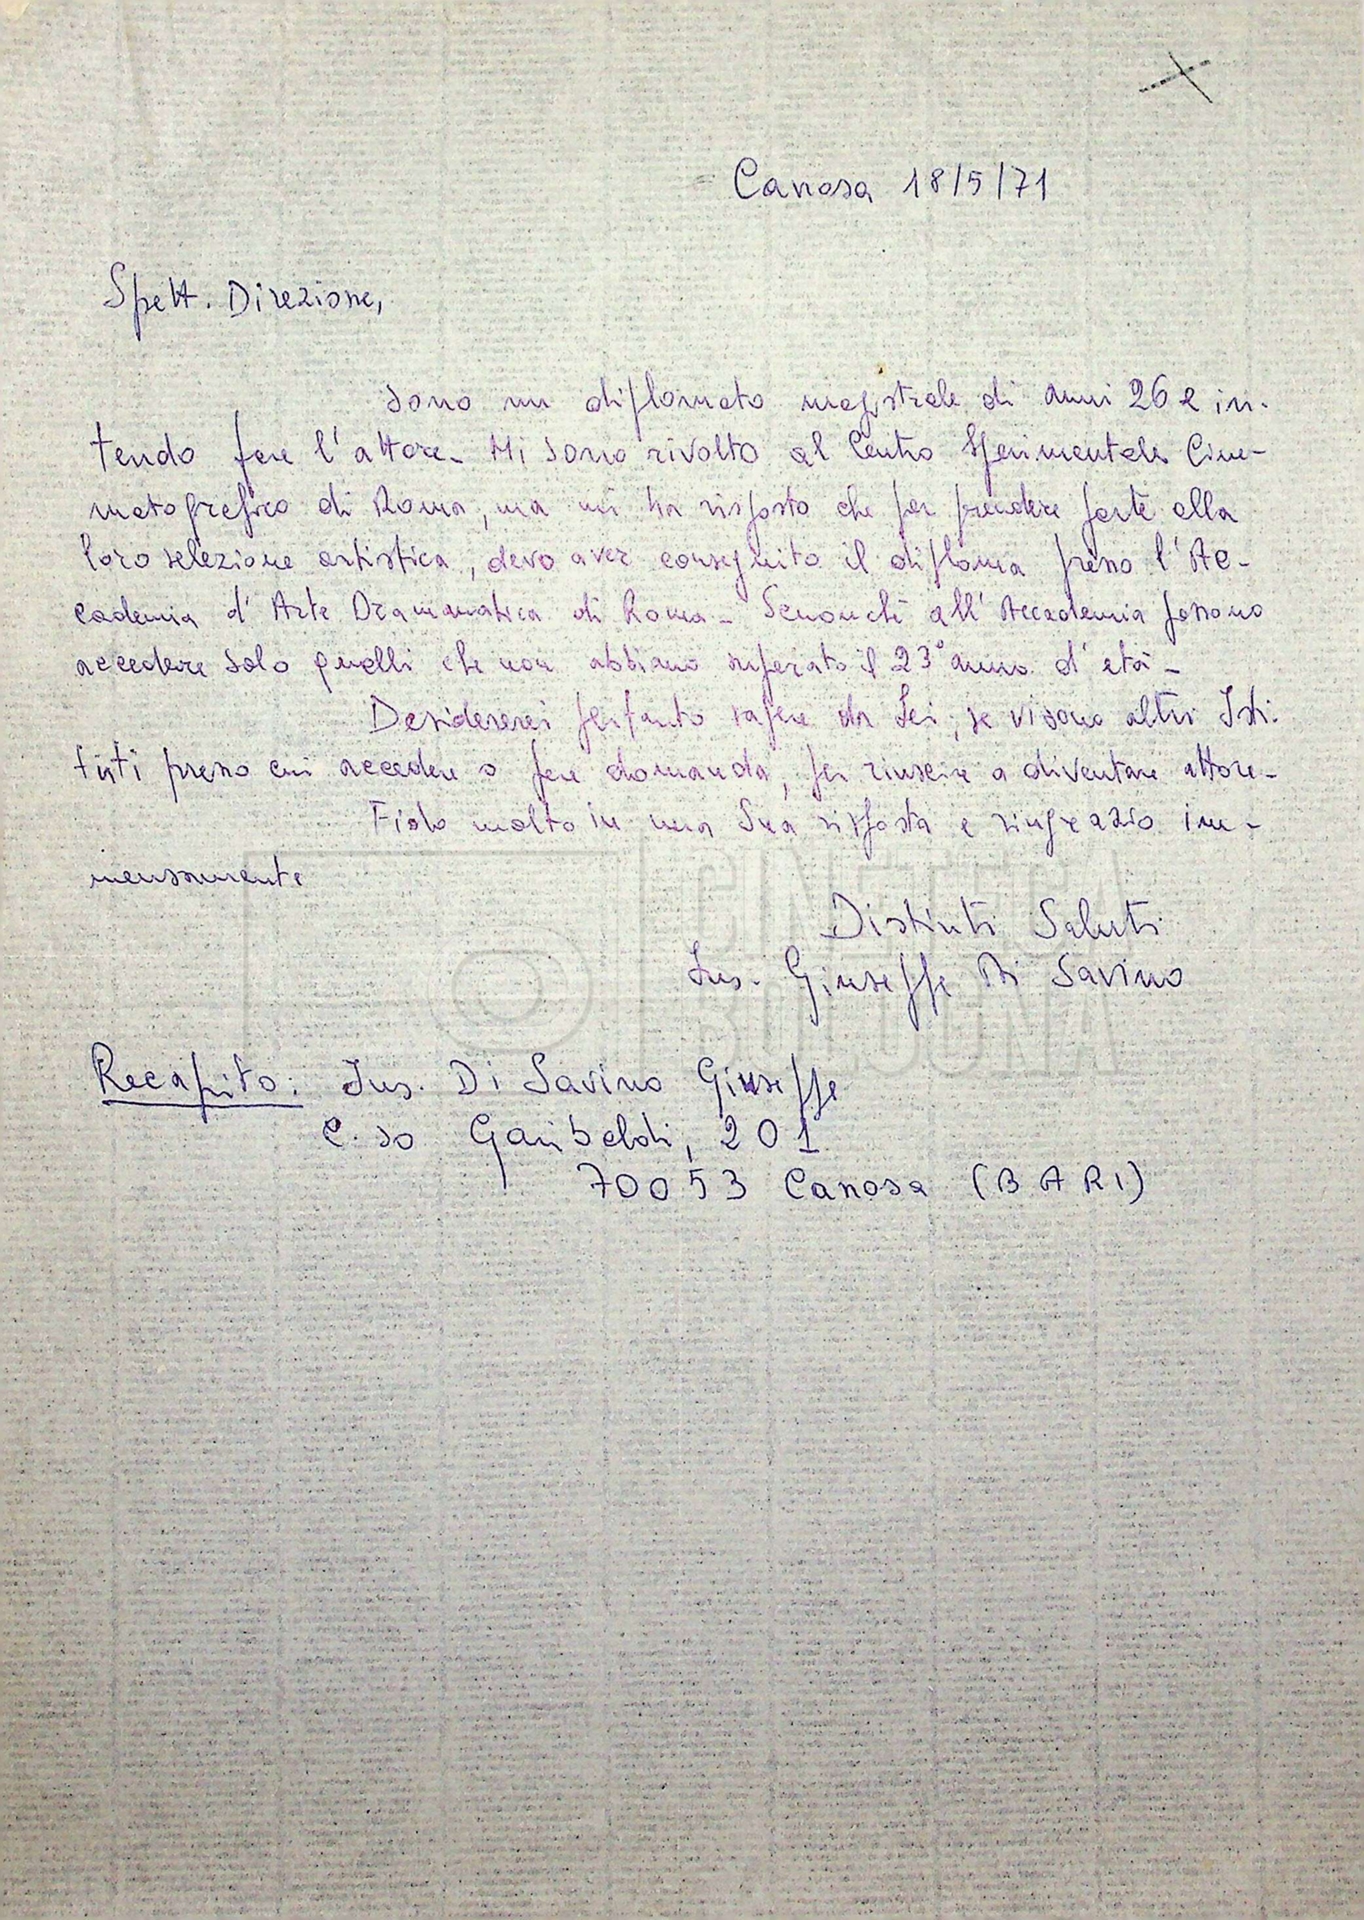 Canosa 18/5/71
Spett. Direzione,
sono un diplomato magistrale di anni 26 e in-
tendo fare l'attore. Mi sono rivolto al Centro Sperimentale Cine-
matografico di Roma, ma mi ha risposto che per prendere parte alla
loro selezione artistica, devo aver conseguito il diploma presso l'Ac-
cademia d'Arte Drammatica di Roma. Senonché all'Accademia possono
accedere solo quelli che non abbiano superato il 23° anno d'età.
Desidererei pertanto sapere da Lei, se vi sono altri Isti-
tuti presso cui accedere o fare domanda, per riuscire a diventare attore.
Fido molto in una Sua risposta e ringrazio im-
mensamente
Distinti Saluti
Ins. Giuseppe Di Savino
Recapito: Ins. Di Savino Giuseppe
C.so Garibaldi, 201
70053 Canosa (BARI)
CINETECA
BOLOGNA